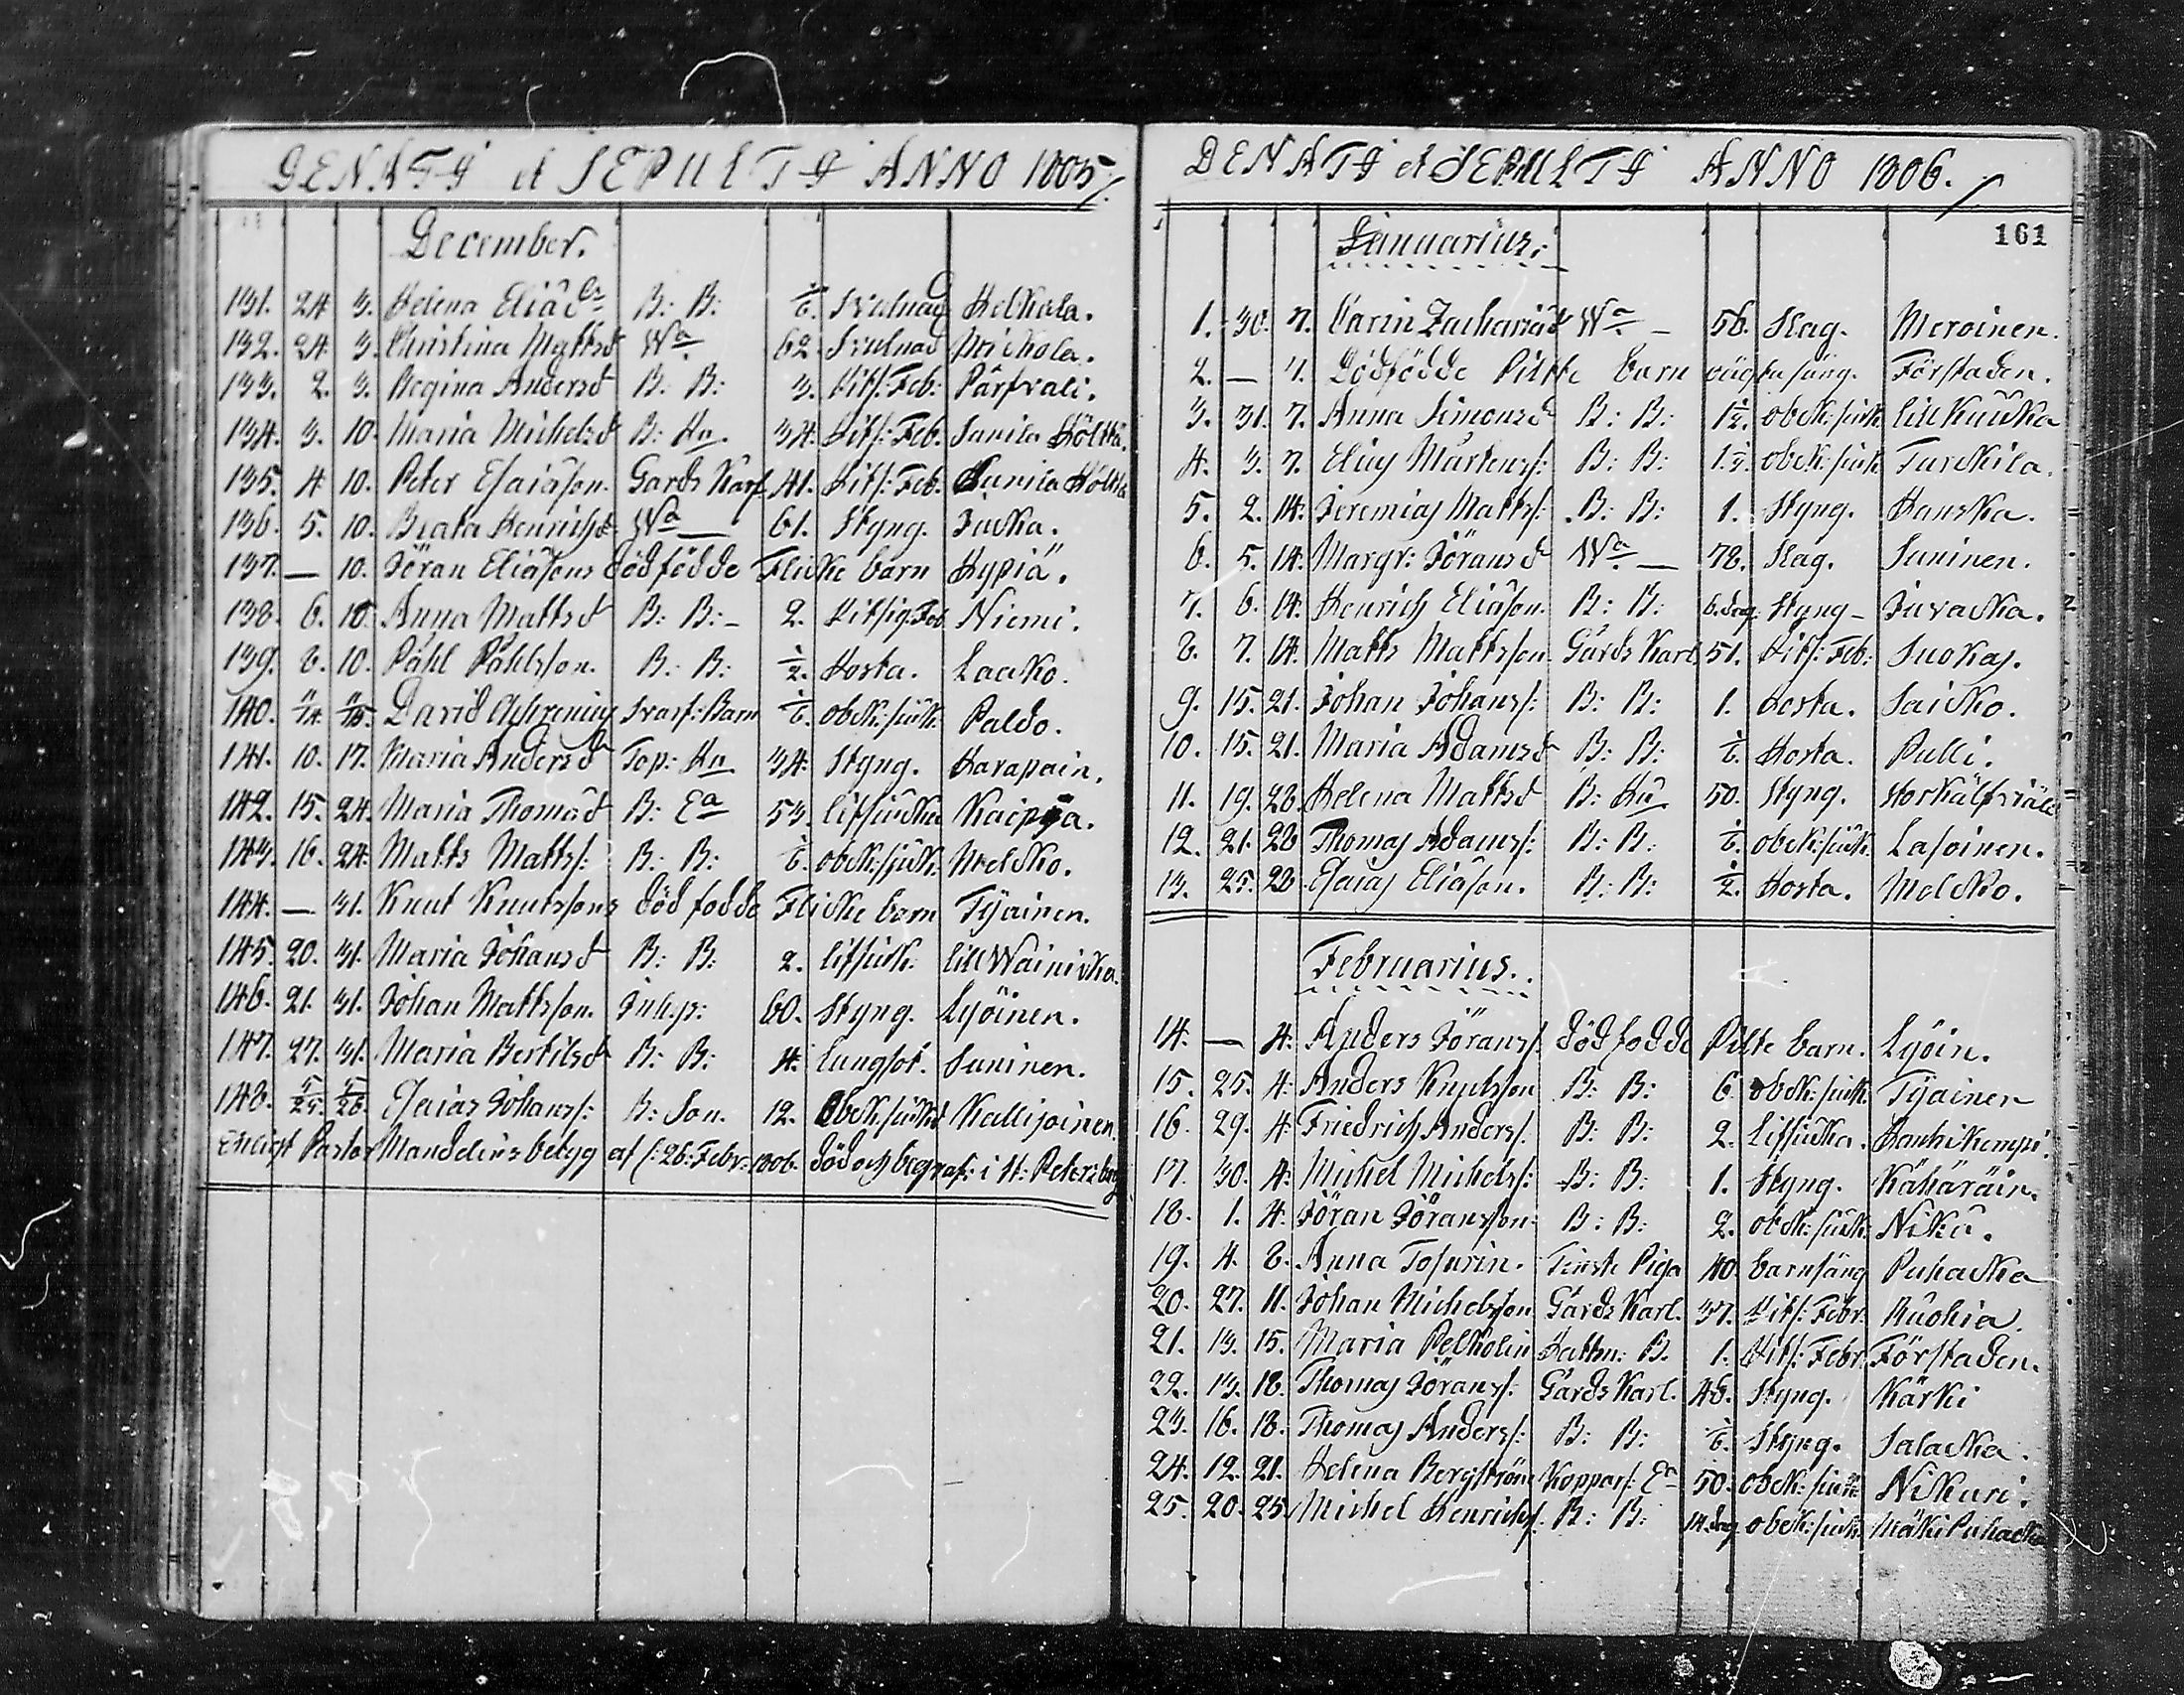 DENATI et SEPULTI ANNO 1805.
December.
131. 24 3. Helena Eliæd:r B: B: 1/6. Svulnad Helkala.
132. 24 3. Christina Mattsd Wa 62. Svulnad Mickola.
133. 2. 3. Regina Andersd B: B: 3. Hits: Feb: Pärfvali.
134. 3. 10. Maria Michelsd B: Hu. 34. Hits: Feb. Sunila Höltta.
135. 4 10. Peter Esaiason. Gards Karl 41. Hits: Feb. Sunila Höltta
136. 5. 10. Beata Henrichsd Wa — 61. Styng. Jucka.
137. — 10. Jöran Eliasons dödfödde Flicke barn Hypiä.
138. 6. 10. Anna Mattsd B: B: - 2. Hitsig: Feb Niemi.
139. 8. 10. Påhl Påhlsson. B: B: 1/2. Hosta. Laacko.
140. 11/14. 11/18. David Ahrenius Svars: Barn 1/6. obek: siuk: Paldo.
141. 10. 17. Maria Andersd Top: Hu 34. Styng. Harapain.
142. 15. 24. Maria Thomæd B: Ea 53. litsiucka Kaipia.
143. 16. 24. Matts Matts: B: B: 1/6. obek: sjuk: Melcko.
144. — 31. Knut Knutssons död fodde Flicke barn Tyainen.
145. 20. 31. Maria Johansd B: B: 2. litsiuk. lill Wainicka.
146. 21. 31. Johan Mattsson. Inhys: 60. Styng. Lyöinen.
147. 27. 31. Maria Bertilsd B: B: 4. lungsot. Suninen.
148. 5/25. 5/26. Esaias Johans: B: Son. 12. Obek: siukd Kallijoinen.
Enligt Pastor Mandelins betyg af s: 26: Febr: 1806. död och begraf: i St: Petersburg
DENATI et SEPULTI ANNO 1806.
161
Januarius.
1. 30. 7. Carin Zachariæd Wa — 56. Slag. Meroinen.
2. — 7. Dödfödde Piltte barn oägta säng. Förstaden.
3. 31. 7. Anna Simonsd B: B: 1 1/2. obek: siuk. lill Kuicka
4. 3. 7. Elias Mårtens: B: B: 1. 1/3. obek: siuk Turckila.
5. 2. 14. Jeremias Matts: B: B: 1. Styng. Hanska.
6. 5. 14. Margr: Jöransd Wa — 78. Slag. Suninen.
7. 6. 14. Henrich Eliason. B: B: 6. dag Styng - Juvacka.
8. 7. 14. Matts Mattsson Gårds Karl 51. Hits: Feb: Suokas.
9. 15. 21. Johan Johans: B: B: 1. Hosta. Saicko.
10. 15. 21. Maria Adamsd B: B: 1/6. Hosta. Pulli.
11. 19. 28. Helena Mattsd B: Hu. 50. Styng. Storkälfviälä
12. 21. 28 Thomas Adams: B: B. 1/6. obek: siuk. Lasoinen.
13. 25. 28 Esaias Eliason. B: B: 1/2. Hosta. Melcko.
Februarius.
14. — 4. Anders Jörans: död fodde Pilte barn. Lyöin.
15. 25. 4. Anders Knutsson B: B: 6. obek: siuk. Tyainen
16. 29. 4. Friedrich Anders: B: B: 2. litsiucka. Hanhikempi.
17. 30. 4. Michel Michels: B: B: 1. Styng. Kähäräin.
18. 1. 4. Jöran Jöransson. B: B: 2. obek: siuk: Nikä.
19. 4. 8. Anna Tofurin. Tienste Piga 40. barnsäng Puhacka
20. 27. 11. Johan Michelsson Gårds Karl. 37. Hits: Febr. Ruohia.
21. 13. 15. Maria Pelkolin Hattm: B. 1. Hits: Febr. Förstaden.
22. 13. 18. Thomas Jörans: Gårds Karl. 48. Styng. Kärki
23. 16. 18. Thomas Anders: B: B: 1/6. Styng. Salacka.
24. 12. 21. Helena Bergström Koppars: Ea 50. obek: siuk Nikuri.
25. 20. 25. Michel Henrichs: B: B: 14. dag obek: siuk. Mäki Puhacka